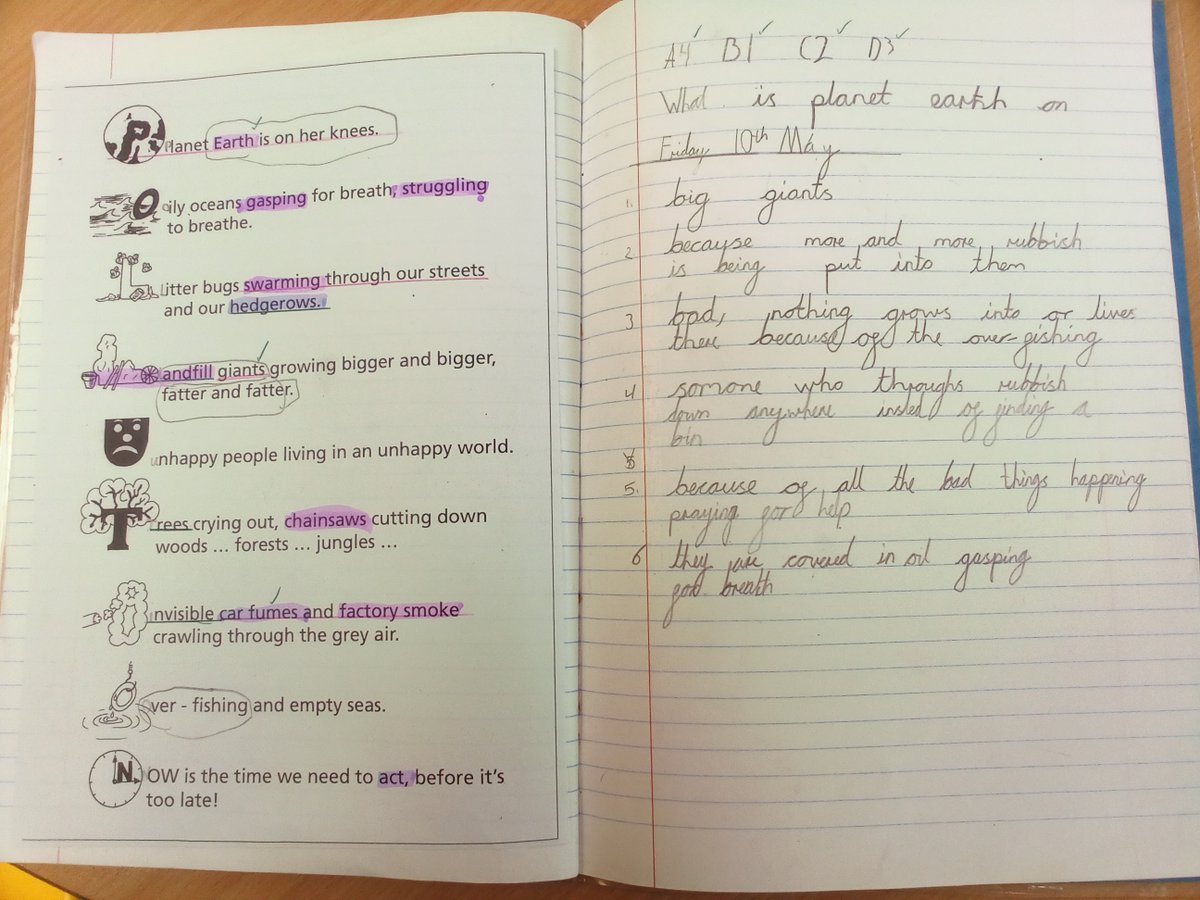 Planet Earth is on her knees.
Oily oceans gasping for breath, struggling
to breathe.
Litter bugs swarming through our streets
and our hedgerows.
Landfill giants growing bigger and bigger,
fatter and fatter.
unhappy people living in an unhappy world.
Trees crying out, chainsaws cutting down
woods ... forests ... jungles ...
Invisible car fumes and factory smoke
crawling through the grey air.
Over - fishing and empty seas.
NOW is the time we need to act, before it's
too late!
A4 B1 C2 D3
What is planet earth on
Friday 10th May
1. big giants
2 because more and more rubbish
is being put into them
3 bad, nothing grows into or lives
there because of the over-fishing
4 somone who throughs rubbish
down anywhere insted of finding a
bin
5. because of all the bad things happening
praying for help
6 they are covered in oil gasping
for breath